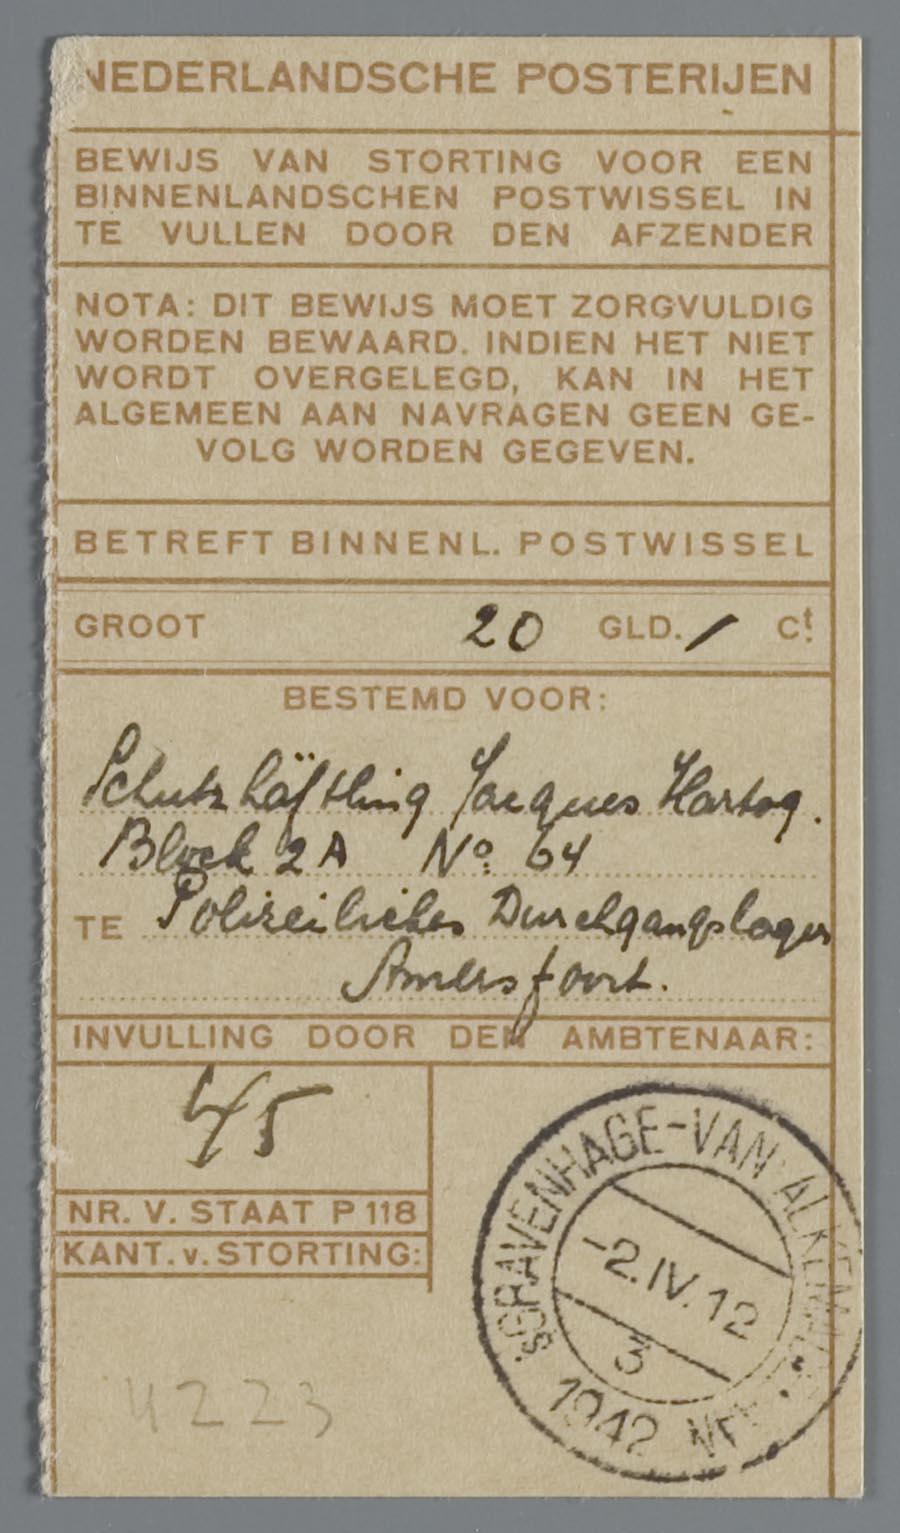 NEDERLANDSCHE POSTERIJEN
BEWIJS VAN STORTING VOOR EEN
BINNENLANDSCHEN POSTWISSEL IN
TE VULLEN DOOR DEN AFZENDER
NOTA: DIT BEWIJS MOET ZORGVULDIG
WORDEN BEWAARD. INDIEN HET NIET
WORDT OVERGELEGD, KAN IN HET
ALGEMEEN AAN NAVRAGEN GEEN GE-
VOLG WORDEN GEGEVEN.
BETREFT BINNENL. POSTWISSEL
GROOT 20 GLD. / Ct.
BESTEMD VOOR:
Schutzhäftling Jacques Hartog.
Block 2A No. 64
TE Polizeiliches Durchgangslager
Amersfoort.
INVULLING DOOR DEN AMBTENAAR:
45
NR. V. STAAT P 118
KANT. v. STORTING:
'SGRAVENHAGE-VAN ALKEMADE
-2.IV.12
3
1942
4223